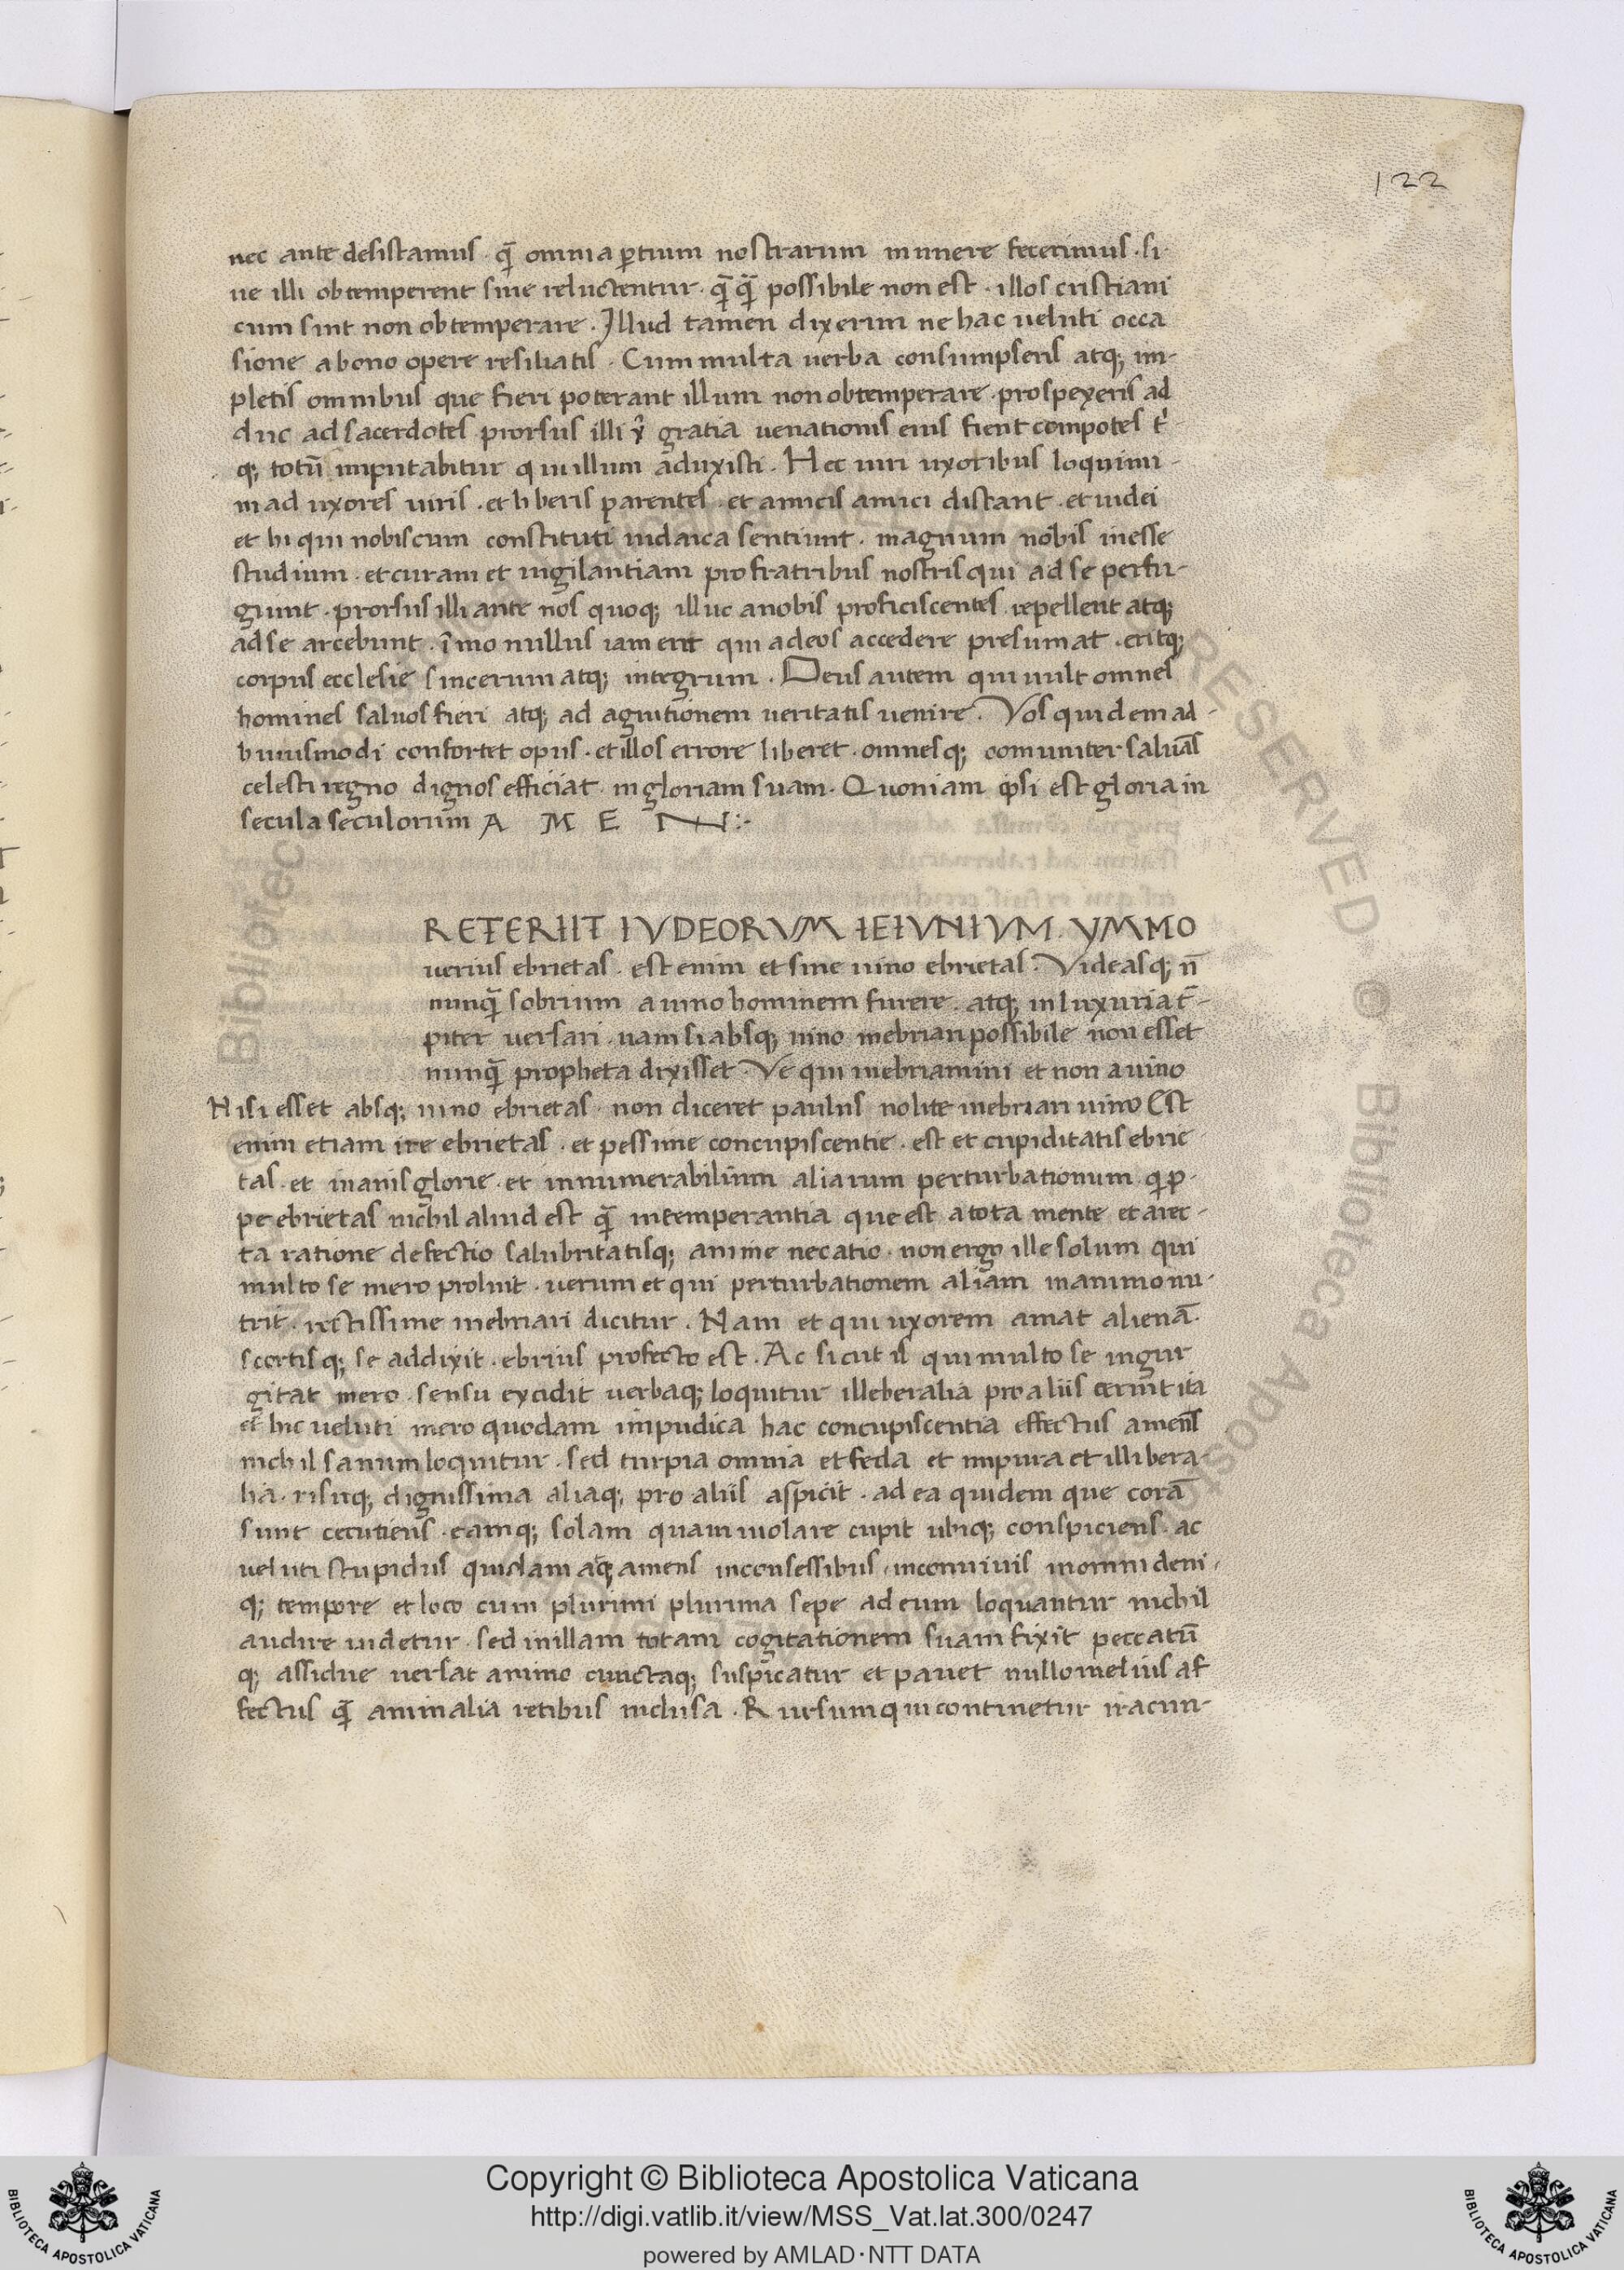 122
nec ante desistamus · qᷓ omnia ꝑtium nostrarum munere fecerimus · si
ue illi obtemperent siue reluctentur · qᷓqᷓ possibile non est · illos cristiani
cum sint non obtemperare · Illud tamen dixerim ne hac ueluti occa
sione a bono opere resiliatis · Cum multa uerba consumpseris atq; im-
pletis omnibus que fieri poterant illum non obtemperare · prospexeris ad
duc ad sacerdotes · prorsus illi gratia uenationis eius fient compotes
q; totū imputabitur qui illum aduxisti · Hec uiri uxoribus loquimi-
ni ad uxores uiris · et liberis parentes · et amicis amici dictant · et iudei
et hi qui nobiscum constituti iudaica sentiunt · magnum nobis inesse
studium · et curam et uigilantiam pro fratribus nostris qui ad se perfu-
giunt · prorsus illi ante nos quoq; illuc a nobis proficiscentes repellent atq;
ad se arcebunt · īmo nullus iam erit qui ad eos accedere presumat · eritq;
corpus ecclesie sincerum atq; integrum · Deus autem qui uult omnes
homines saluos fieri atq; ad agnitionem ueritatis uenire · Vos quidem ad
huiusmodi confortet opus · et illos errore liberet · omnesq; comuniter saluās
celesti regno dignos efficiat in gloriam suam · Quoniam ip̄si est gloria in
secula seculorum A M E N :·
RETERIIT IVDEORVM IEIVNIVM · YMMO
uerius ebrietas · est enim et sine uino ebrietas · Videasq; n̄
nunqᷓ sobrium a uino hominem furere · atq; in luxuria t̄-
piter uersari · nam si absq; uino inebriari possibile non esset
nunqᷓ propheta dixisset · Ve qui inebriamini et non a uino
Nisi esset absq; uino ebrietas · non diceret paulus nolite inebriari uino Est
enim etiam ire ebrietas · et pessime concupiscentie · est et cupiditatis ebrie
tas · et inanis glorie · et innumerabilium aliarum perturbationum · q̇ p̱
pe ebrietas nichil aliud est qᷓ intemperantia que est a tota mente et a rec-
ta ratione defectio salubritatisq; anime necatio · non ergo ille solum qui
multo se mero proluit · uerum et qui perturbationem aliam in animo nu-
trit · rectissime inebriari dicitur · Nam et qui uxorem amat alienā
scortisq; se addixit · ebrius profecto est · Ac sicut is qui multo se ingur
gitat mero · sensu excidit uerbaq; loquitur illeberalia pro aliis cernit ita
et hic ueluti mero quodam impudica hac concupiscentia effectus amens
nichil sanum loquitur · sed turpia omnia et feda et impura et illibera
lia · risuq; dignissima aliaq; pro aliis aspicit · ad ea quidem que corā
sunt cecutiens · eamq; solam quam uiolare cupit ubiq; conspiciens · ac
ueluti stupidus quidam atq; amens in consessibus · in conuiuis in omni deni-
q; tempore et loco cum plurimi plurima sepe ad eum loquantur nichil
audire uidetur · sed in illam totam cogitationem suam fixit peccatū
q; assidue uersat animo cunctaq; suspicatur et pauet nullo melius af
fectus qᷓ animalia retibus inclusa · Rursum qui continetur iracun-
Copyright © Biblioteca Apostolica Vaticana
http://digi.vatlib.it/view/MSS_Vat.lat.300/0247
powered by AMLAD·NTT DATA
BIBLIOTECA APOSTOLICA VATICANA
BIBLIOTECA APOSTOLICA VATICANA